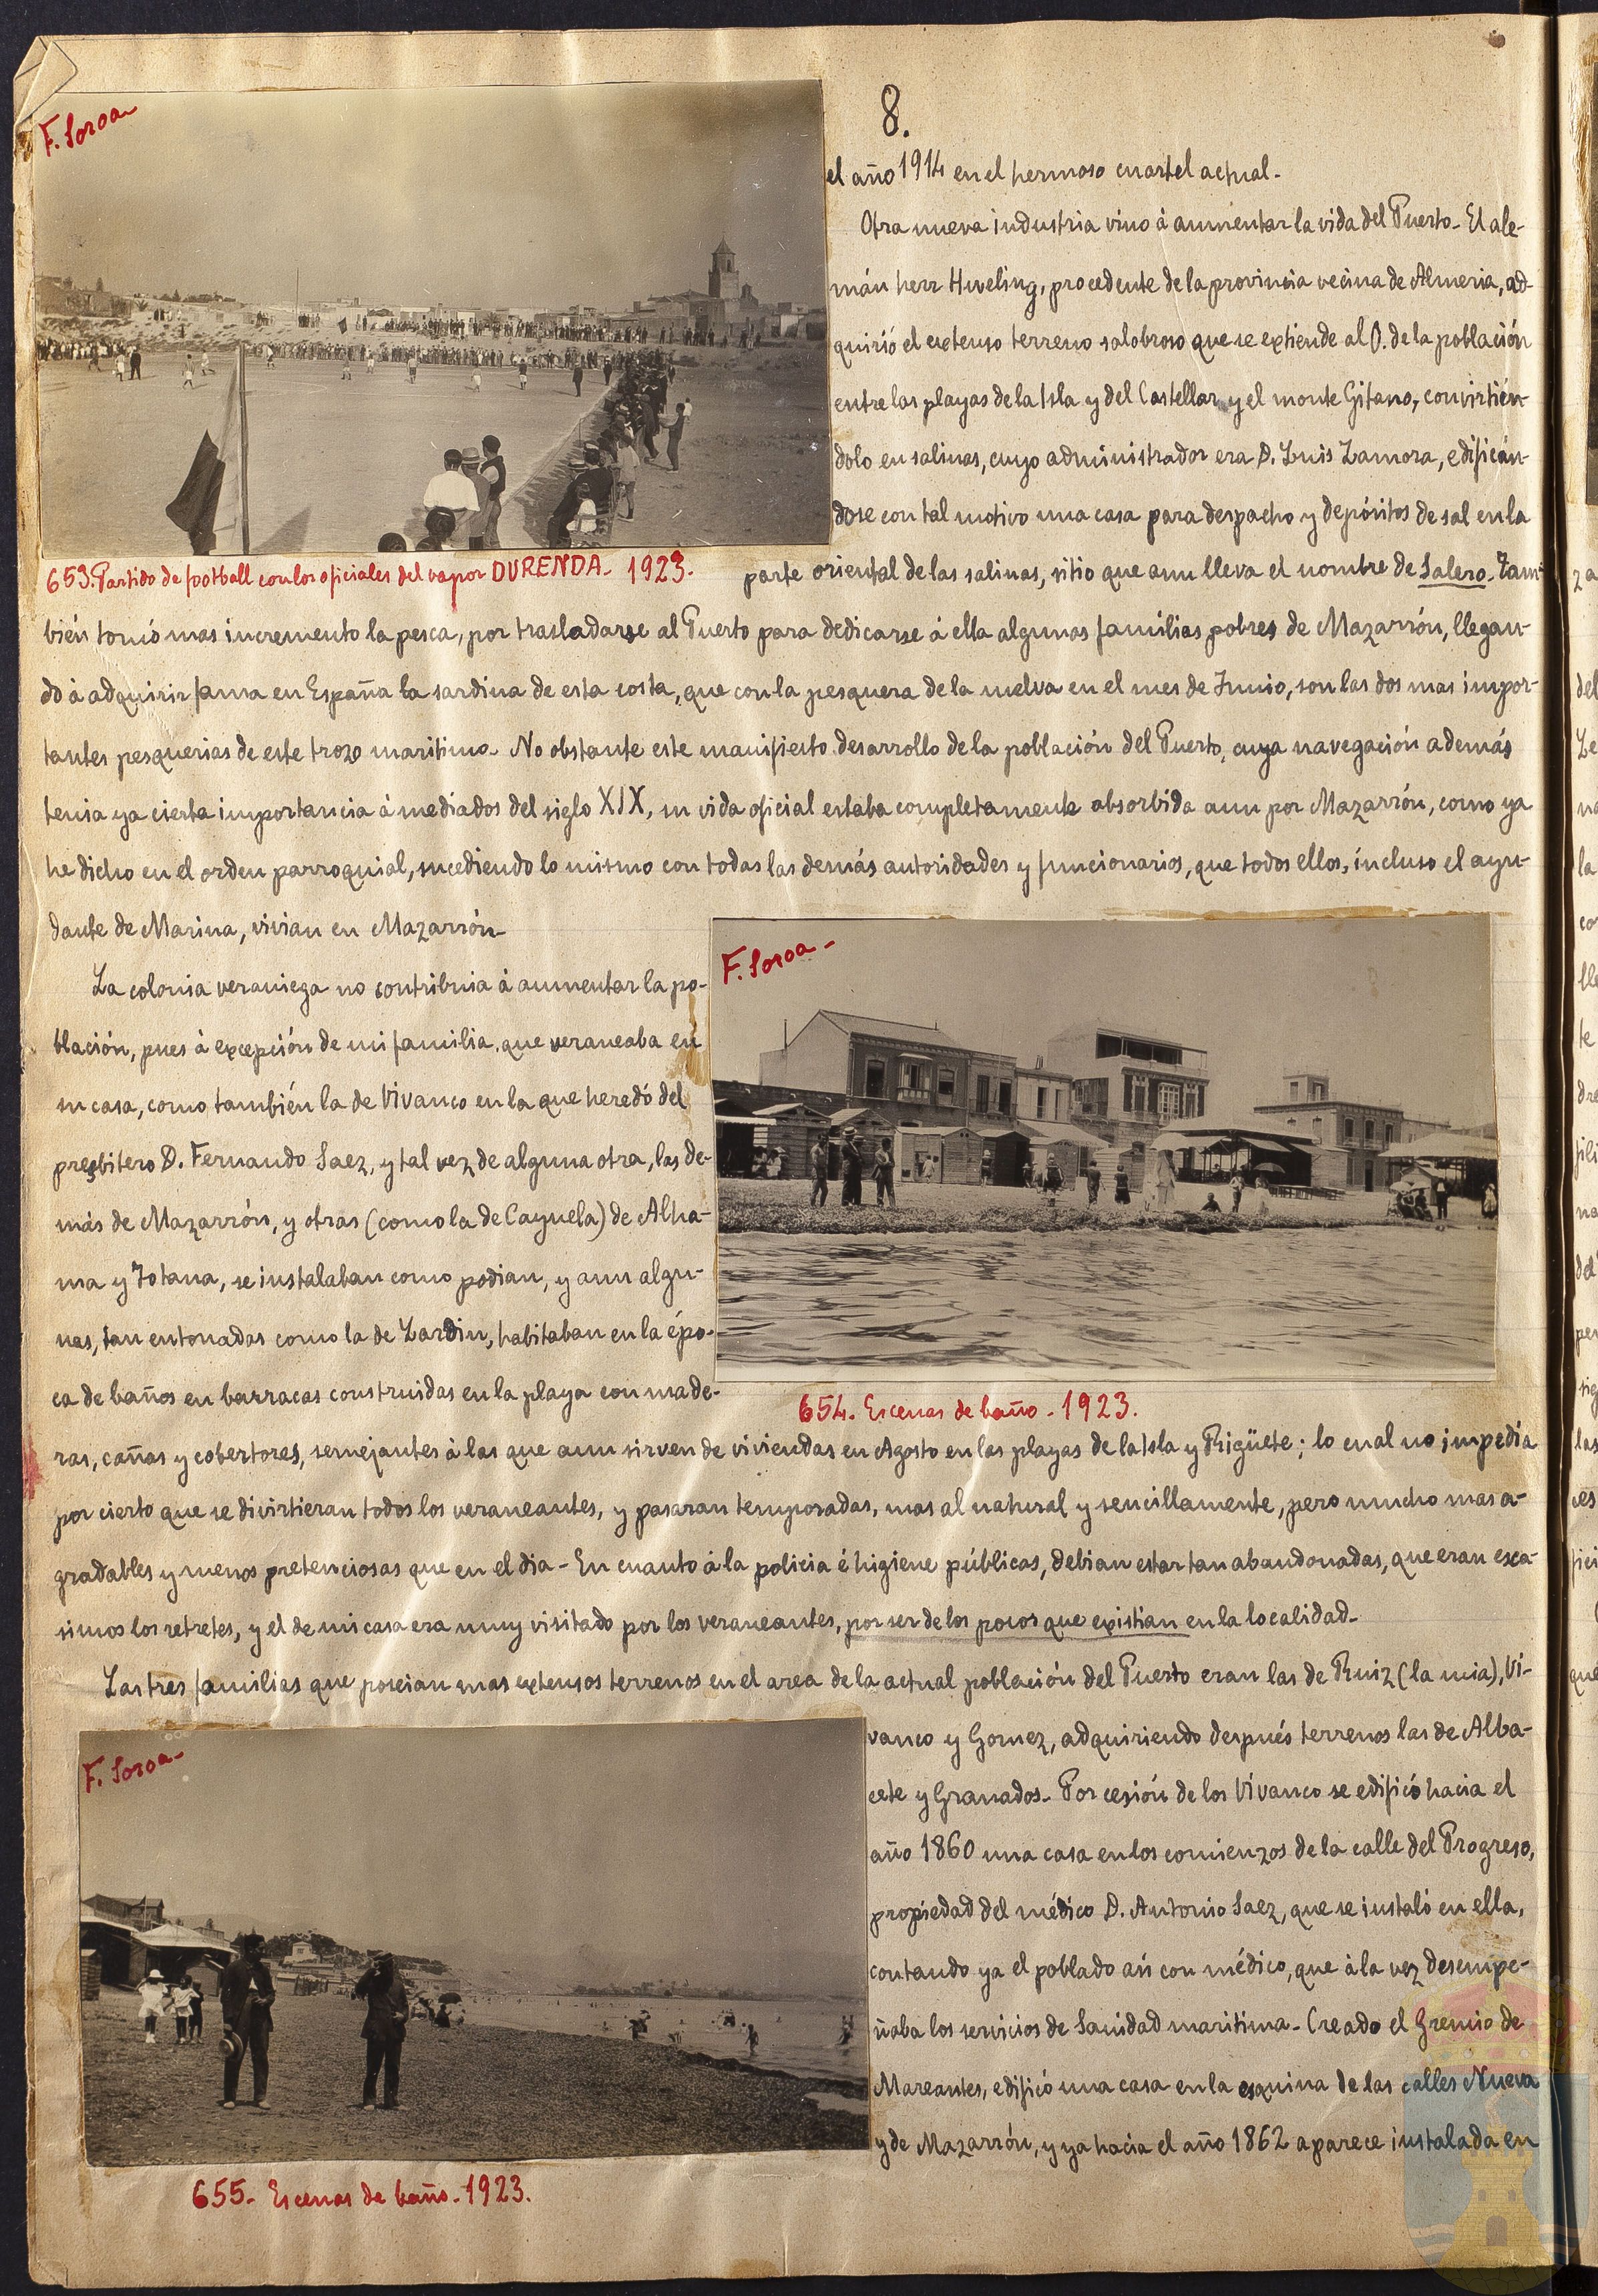 8.
F. Soroa
el año 1914 en el hermoso cuartel actual.
Otra nueva industria vino á aumentar la vida del Puerto. El ale-
mán herr Hweling, procedente de la provincia vecina de Almeria, ad-
quirió el extenso terreno salobroso que se extiende al O. de la población
entre las playas de la Isla y del Castellar y el monte Gitano, convirtién-
dolo en salinas, cuyo administrador era D. Luis Zamora, edificán-
dose con tal motivo una casa para despacho y depósitos de sal en la
653. Partido de football con los oficiales del vapor DURENDA. 1923.
parte oriental de las salinas, sitio que aun lleva el nombre de Salero. Tam-
bién tomó mas incremento la pesca, por trasladarse al Puerto para dedicarse á ella algunas familias pobres de Mazarrón, llegan-
do á adquirir fama en España la sardina de esta costa, que con la pesquera de la melva en el mes de Junio, son las dos mas impor-
tantes pesquerias de este trozo maritimo. No obstante este manifiesto desarrollo de la población del Puerto, cuya navegación además
tenia ya cierta importancia á mediados del siglo XIX, su vida oficial estaba completamente absorbida aun por Mazarrón, como ya
he dicho en el orden parroquial, sucediendo lo mismo con todas las demás autoridades y funcionarios, que todos ellos, incluso el ayu-
dante de Marina, vivian en Mazarrón.
F. Soroa
La colonia veraniega no contribuia á aumentar la po-
blación, pues á excepción de mi familia, que veraneaba en
su casa, como también la de Vivanco en la que heredó del
presbitero D. Fernando Saez, y tal vez de alguna otra, las de-
más de Mazarrón, y otras (como la de Cayuela) de Alha-
ma y Totana, se instalaban como podian, y aun algu-
nas, tan entonadas como la de Zardin, habitaban en la épo-
ca de baños en barracas construidas en la playa con made-
654. Escenas de baño. 1923.
ras, cañas y cobertores, semejantes á las que aun sirven de viviendas en Agosto en las playas de la Isla y Rigüete; lo cual no impedia
por cierto que se divirtieran todos los veraneantes, y pasaran temporadas, mas al natural y sencillamente, pero mucho mas a-
gradables y menos pretenciosas que en el dia. En cuanto á la policia é higiene públicas, debian estar tan abandonadas, que eran esca-
simos los retretes, y el de mi casa era muy visitado por los veraneantes, por ser de los pocos que existian en la localidad.
Las tres familias que poseian mas extensos terrenos en el area de la actual población del Puerto eran las de Ruiz (la mia), Vi-
F. Soroa
vanco y Gomez, adquiriendo después terrenos las de Alba-
cete y Granados. Por cesión de los Vivanco se edificó hacia el
año 1860 una casa en los comienzos de la calle del Progreso,
propiedad del médico D. Antonio Saez, que se instaló en ella,
contando ya el poblado asi con médico, que á la vez desempe-
ñaba los servicios de Sanidad maritima. Creado el Gremio de
Mareantes, edificó una casa en la esquina de las calles Nueva
y de Mazarrón, y ya hacia el año 1862 aparece instalada en
655. Escenas de baño. 1923.